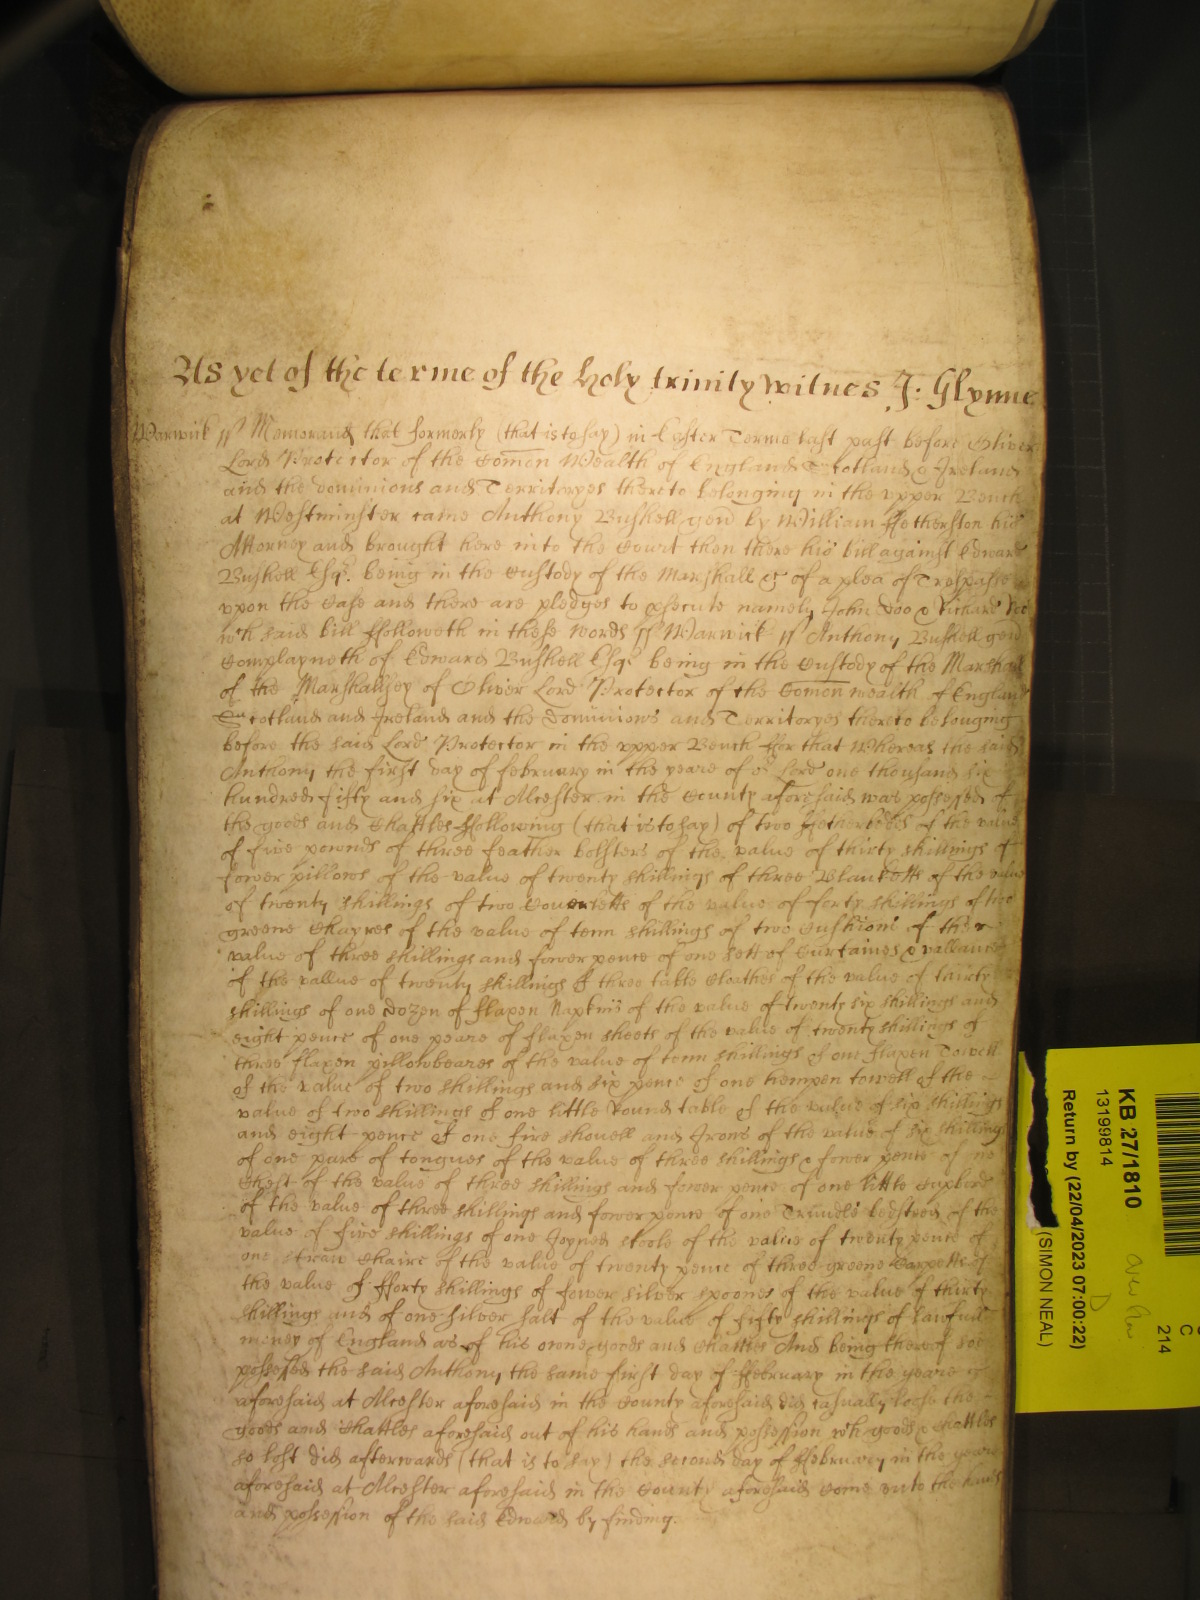 As yet of the terme of the holy trinity witnes J: Glynne
Warwick ss Memorand that formerly (that is to say) in Easter Terme last past before Oliver
Lord Protector of the Comon Wealth of England Scotland & Ireland
and the dominions and Territoryes thereto belonging in the upper Bench
at Westminster came Anthony Bushell gent by William ffetherston his
Attorney and brought here into the Court then there his bill against Edward
Bushell Esqr. being in the Custody of the Marshall &c of a plea of Trespasse
upon the Case and there are pledges to psecute namely John Doo & Richard Roo
wch said bill ffolloweth in these words ss Warwick ss Anthony Bushell gent
Complayneth of Edward Bushell Esqr being in the Custody of the Marshall
of the Marshallsey of Oliver Lord Protector of the Comon wealth of England
Scotland and Ireland and the Dominions and Territoryes thereto belonging
before the said Lord Protector in the upper Bench ffor that Whereas the said
Anthony the first day of february in the yeare of or Lord one thousand six
hundred fifty and six at Alcester in the County aforesaid was possessed of
the goods and Chattles ffollowing (that is to say) of two ffetherbedds of the value
of five pownds of three feather bolsters of the value of thirty shillings of
fower pillows of the value of twenty shillings of three Blanketts of the value
of twenty shillings of two Coverletts of the value of forty shillings of two
greene Chayres of the value of tenn shillings of two Cushions of the
value of three shillings and fower pence of one sett of Curtaines & vallance
of the vallue of twenty shillings of three table Cloathes of the value of thirty
shillings of one dozen of flaxen Napkins of the value of twenty six shillings and
eight pence of one peare of flaxen sheets of the value of twenty shillings of
three flaxen pillowbeares of the value of tenn shillings of one flaxen Towell
of the value of two shillings and six pence of one hempen towell of the
value of two shillings of one little Round table of the value of six shillings
and eight pence of one fire shouell and Irons of the value of six shillings
of one pare of tongues of the value of three shillings & fower pence of one
Chest of the value of three shillings and fower pence of one little Cupbord
of the value of three shillings and fower pence of one Trundle bedsteed of the
value of five shillings of one Joyned stoole of the value of twenty pence of
one straw Chaire of the value of twenty pence of three greene Carpetts of
the value of fforty shillings of fower silver spoones of the value of thirty
shillings and of one silver salt of the value of fifty shillings of lawfull
money of England as of his owne goods and Chattles And being thereof soe
possessed the said Anthony the same first day of ffebruary in the yeare
aforesaid at Alcester aforesaid in the County aforesaid did casually loose the
goods and Chattles aforesaid out of his hands and possession wch goods & Chattles
so lost did afterwards (that is to say) the second day of ffebruary in the yeare
aforesaid at Alcester aforesaid in the County aforesaid come unto the hands
and possession of the said Edward by finding.
KB 27/1810
13199814
Return by (22/04/2023 07:00:22)
(SIMON NEAL)
D
C
214